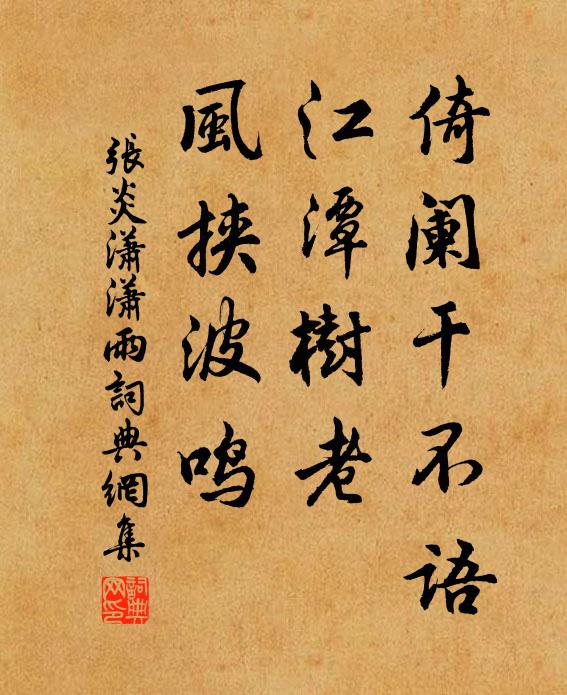 倚阑干不语
江潭樹老
風挾波鸣
張炎瀟瀟雨詞典網集
詞典网印